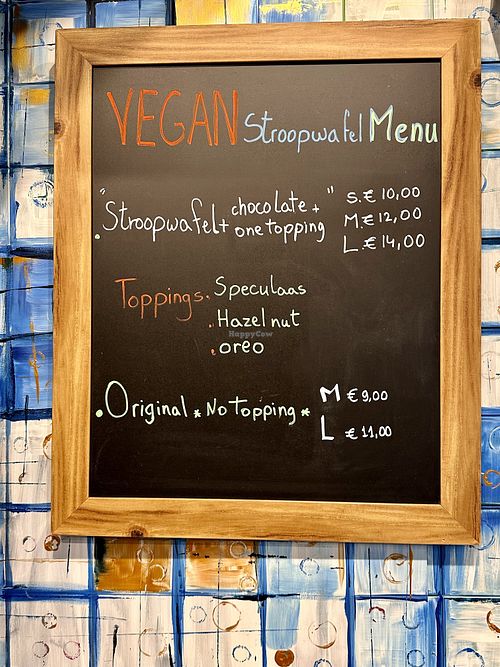 VEGAN Stroopwafel Menu
"Stroopwafel + chocolate + one topping"
S. € 10,00
M. € 12,00
L. € 14,00
Toppings. Speculaas
. Hazelnut
. oreo
HappyCow
. Original * No Topping *
M € 9,00
L € 11,00